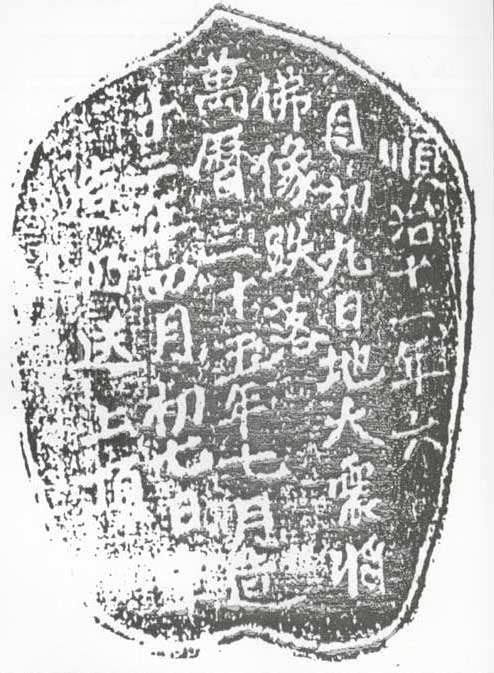 順治十一年六
月初九日地大震將
佛像跌落
萬曆三十五年七月
十二年四月初七日
送上頂